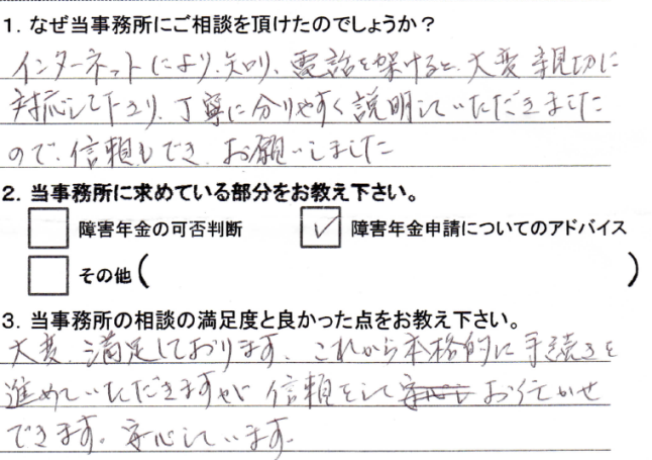 1. なぜ当事務所にご相談を頂けたのでしょうか？
インターネットにより、知り、電話を架けると、大変親切に
対応して下さり、丁寧に分りやすく説明していただきました
ので、信頼もでき、お願いしました
2. 当事務所に求めている部分をお教え下さい。
障害年金の可否判断 ✓ 障害年金申請についてのアドバイス
その他（ ）
3. 当事務所の相談の満足度と良かった点をお教え下さい。
大変、満足しております。これから本格的に手続きを
進めていただきますが 信頼をして お任かせ
できます。安心しています。